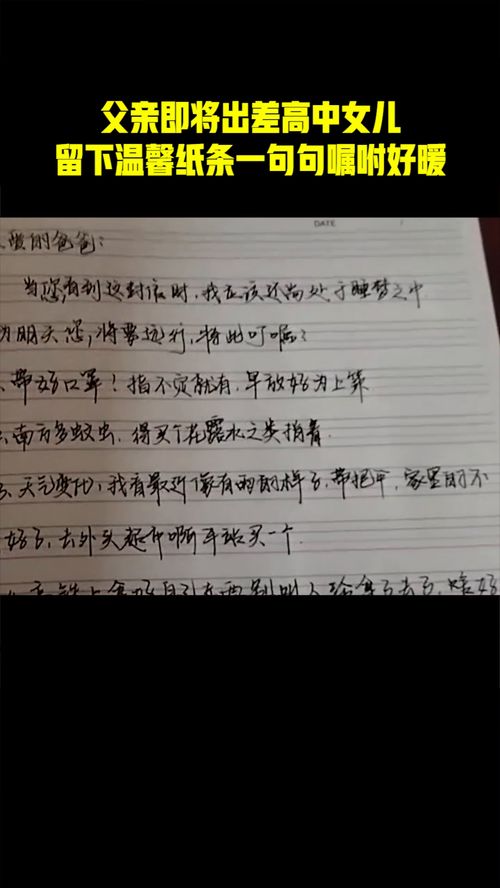 父亲即将出差高中女儿
留下温馨纸条一句句嘱咐好暖
DATE
爸爸:
当您看到这封信时,我应该还尚处于睡梦之中
明天您将要远行,特此叮嘱:
带好口罩!指不定就有,早做好为上策
南方多蚊虫,得买个花露水之类稍着
3、天气变化,我看最近像有雨的样子,带把伞,家里的不
好了,去外头超市啊车站买一个
高铁上拿好自己东西别叫人给拿了去了,